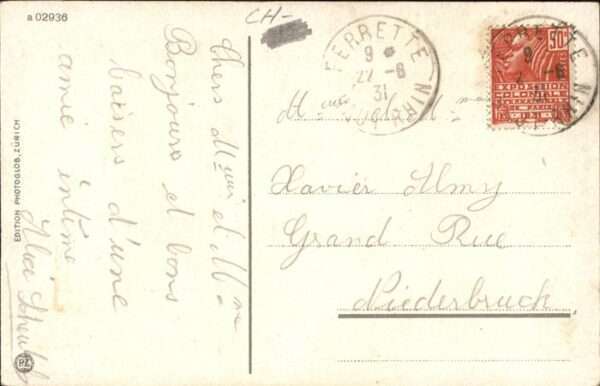 a 02936
CH-
Chers Mieur et Mme
Bonjours et bons
baisers d'une
amie intime
Alice
EDITION PHOTOGLOB, ZÜRICH
PZ
FERRETTE
9 *
27 -6
31
HT RHIN
50c
EXPOSITION
COLONIALE
INTERNATIONALE
PARIS 1931
et Mme
Xavier Almy
Grand Rue
Niederbruck